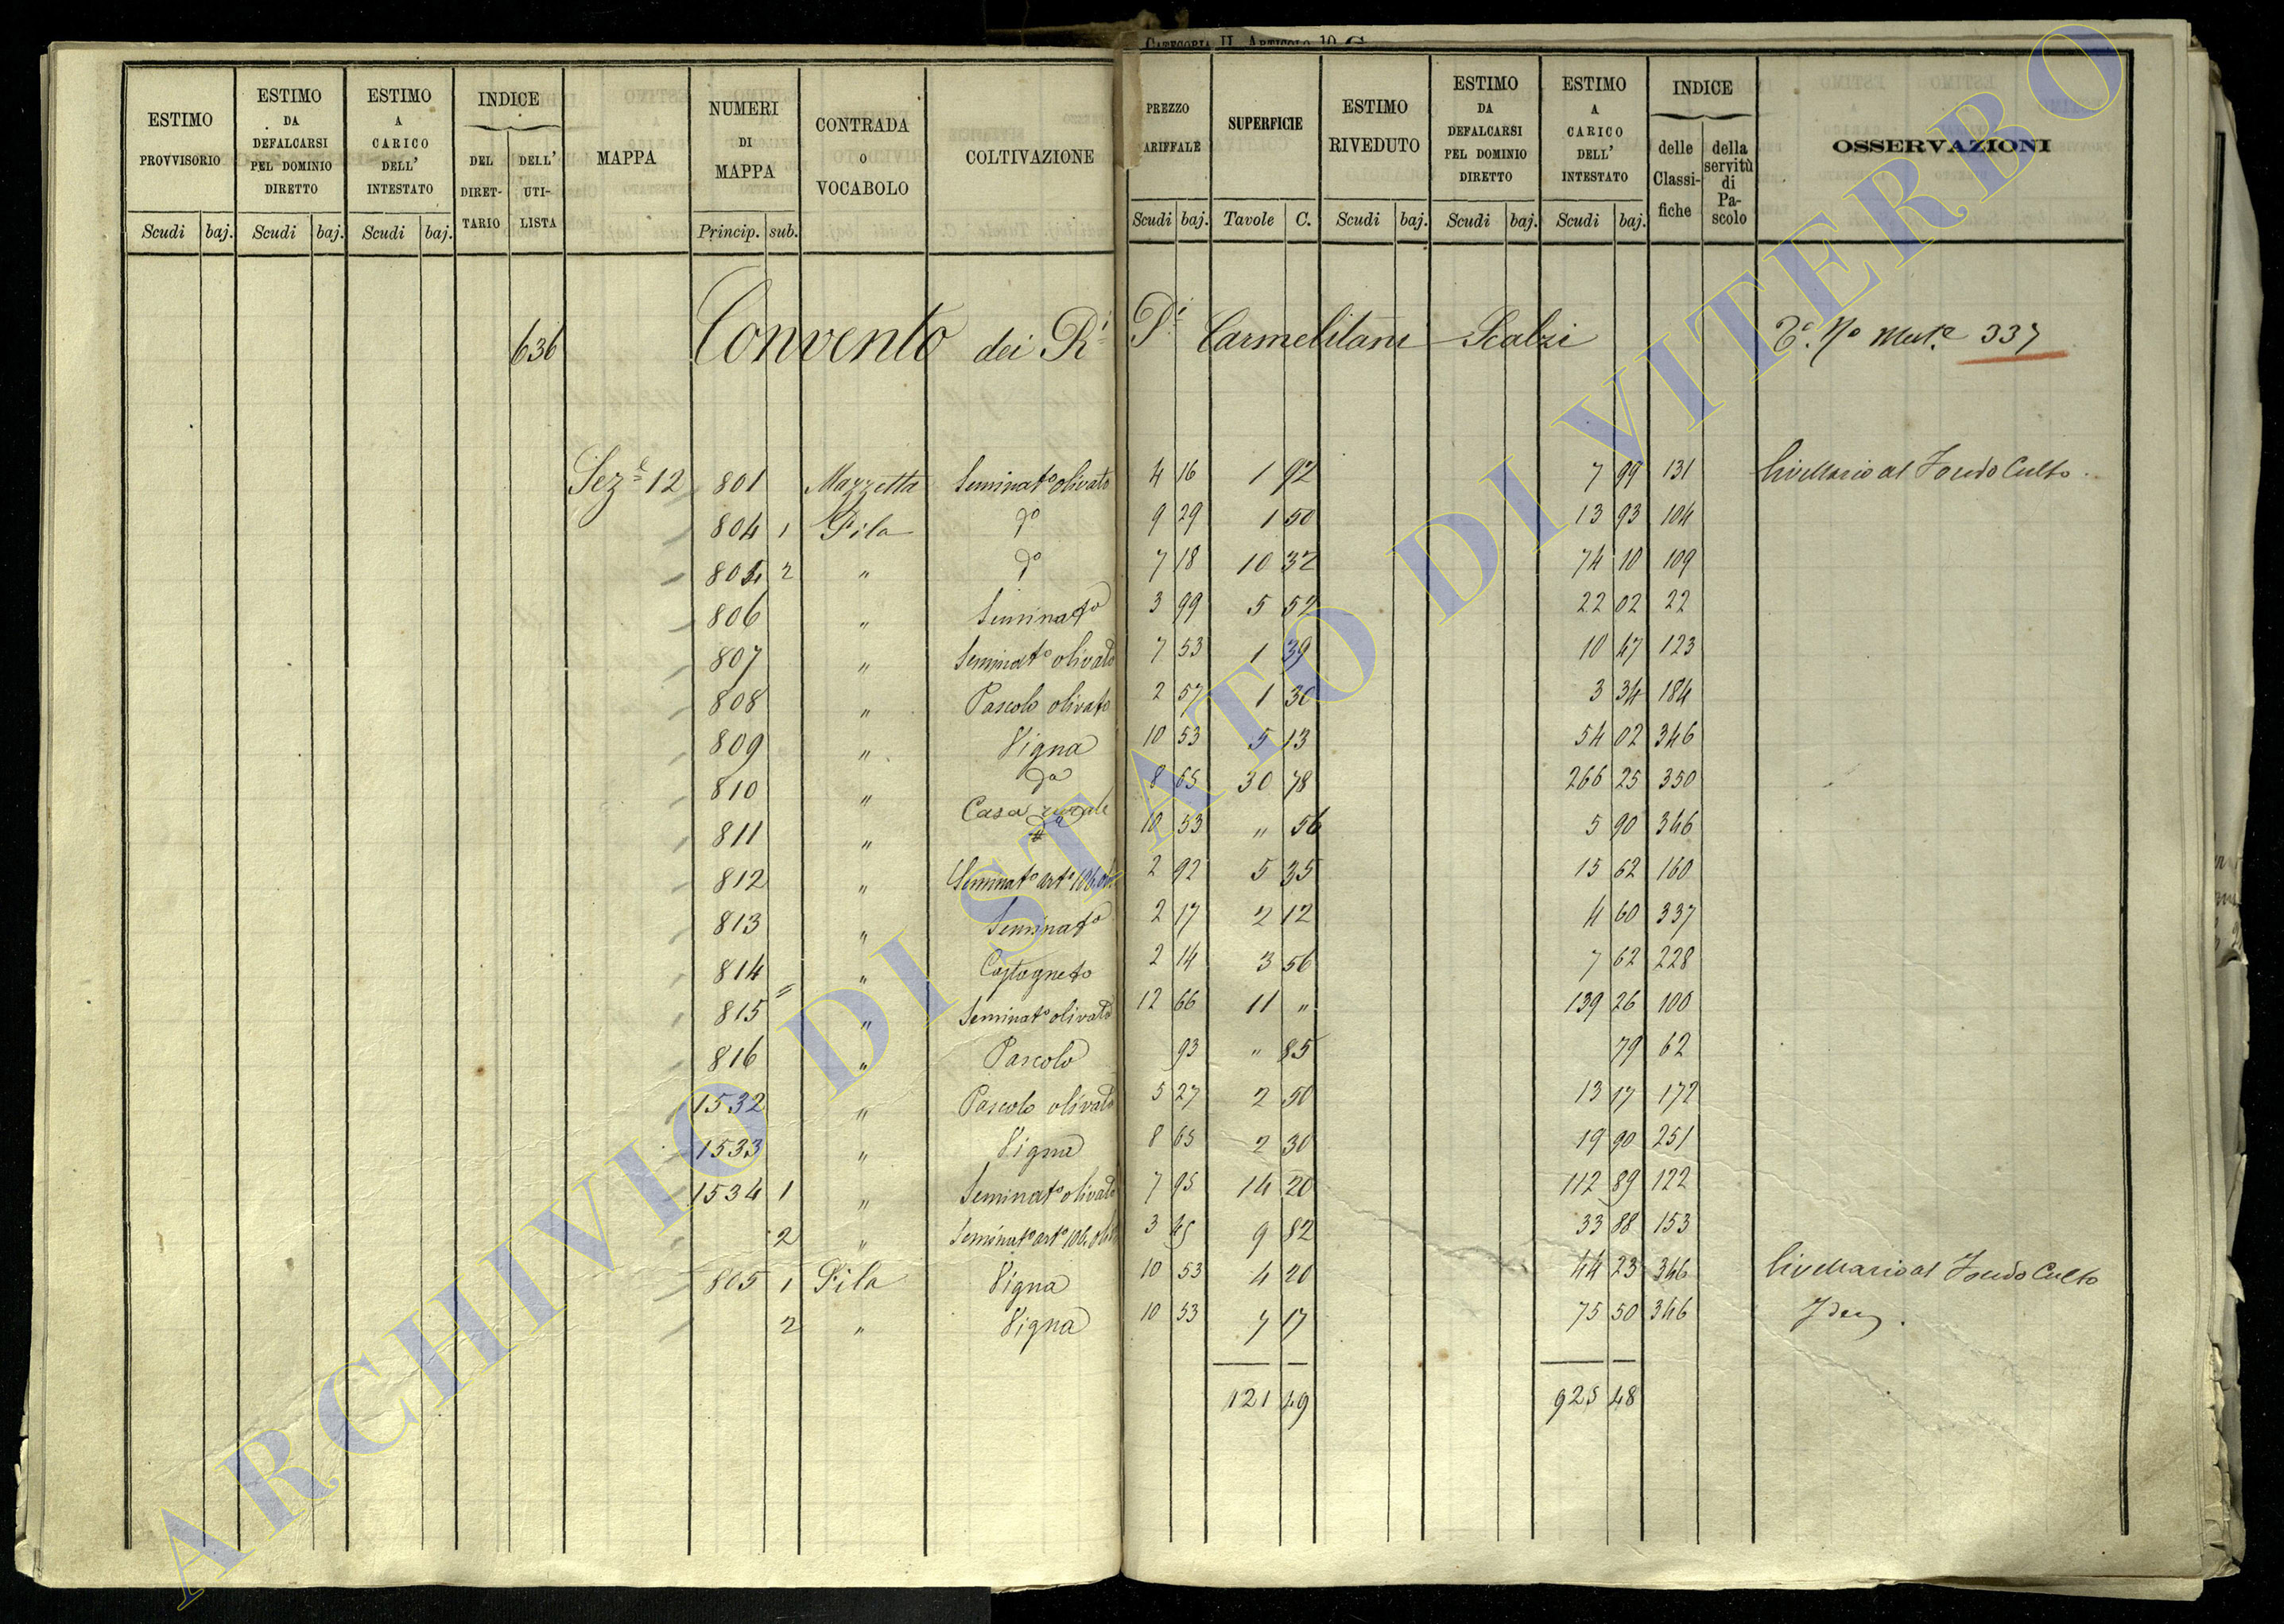 CATEGORIA II. ARTICOLO 10
ESTIMO PROVVISORIO Scudi baj.
ESTIMO DA DEFALCARSI PEL DOMINIO DIRETTO Scudi baj.
ESTIMO A CARICO DELL' INTESTATO Scudi baj.
INDICE DEL DIRET-TARIO DELL' UTI-LISTA
MAPPA
NUMERI DI MAPPA Princip. sub.
CONTRADA O VOCABOLO
COLTIVAZIONE
PREZZO ARIFFALE Scudi baj.
SUPERFICIE Tavole C.
ESTIMO RIVEDUTO Scudi baj.
ESTIMO DA DEFALCARSI PEL DOMINIO DIRETTO Scudi baj.
ESTIMO A CARICO DELL' INTESTATO Scudi baj.
INDICE delle Classi-fiche della servitù di Pa-scolo
OSSERVAZIONI
636 Convento dei Ri Pi Carmelitani Scalzi 337
Seze 12 801 Mazzetta Seminato olivato 4 16 1 92 7 99 131 Livellario al Fondo Culto.
804 1 Pila do 9 29 1 50 13 93 104
804 2 " do 7 18 10 32 74 10 109
806 " Seminato 3 99 5 52 22 02 22
807 " Seminato olivato 7 53 1 39 10 47 123
808 " Pascolo olivato 2 57 1 30 3 34 184
809 " Vigna 10 53 5 13 54 02 346
810 " da 8 65 30 78 266 25 350
811 " Casa rurale da 10 53 " 56 5 90 346
812 " Seminato arto 106. 2 92 5 35 15 62 160
813 " Seminato 2 17 2 12 4 60 337
814 " Castagneto 2 14 3 56 7 62 228
815 " Seminato olivato 12 66 11 " 139 26 100
816 " Pascolo 93 " 85 79 62
1532 " Pascolo olivato 5 27 2 50 13 17 172
1533 " Vigna 8 65 2 30 19 90 251
1534 1 " Seminato olivato 7 95 14 20 112 89 122
2 " Seminato arto 106. 3 45 9 82 33 88 153
805 1 Pila Vigna 10 53 4 20 44 23 346 Livellario al Fondo Culto
2 " Vigna 10 53 7 17 75 50 346 Idem.
121 49 925 48
ARCHIVIO DI STATO DI VITERBO